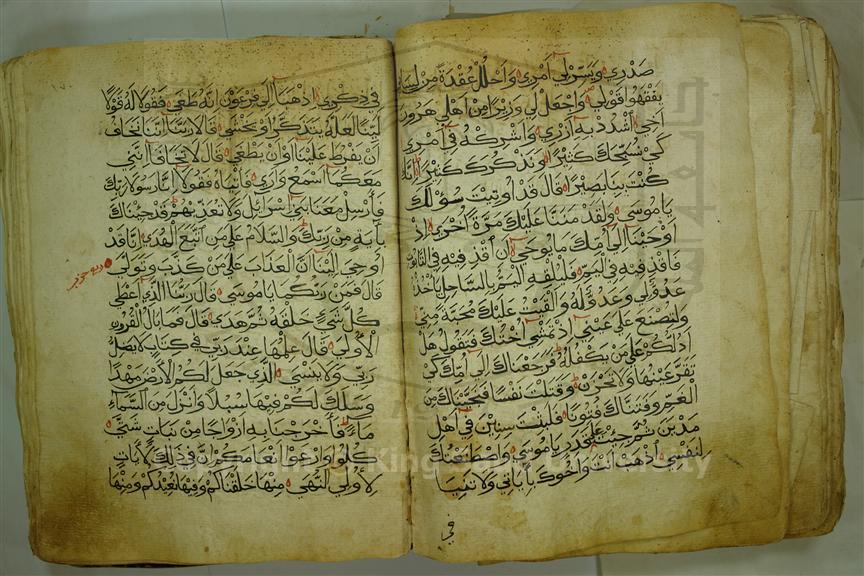 صدري ويسر لي امري واحلل عقدة من لساني
يفقهوا قولي واجعل لي وزيرا من اهلي هرون
اخي اشدد به ازري واشركه في امري
كي نسبحك كثيرا ونذكرك كثيرا انك
كنت بنا بصيرا قال قد اوتيت سؤلك
يا موسى ولقد مننا عليك مرة اخرى اذ
اوحينا الى امك ما يوحى ان اقذفيه في التابوت
فاقذفيه في اليم فليلقه اليم بالساحل ياخذه
عدو لي وعدو له والقيت عليك محبة مني
ولتصنع على عيني اذ تمشي اختك فتقول هل
ادلكم على من يكفله فرجعناك الى امك كي
تقر عينها ولا تحزن وقتلت نفسا فنجيناك من
الغم وفتناك فتونا فلبثت سنين في اهل
مدين ثم جئت على قدر يا موسى واصطنعتك
لنفسي اذهب انت واخوك باياتي ولا تنيا
في
في ذكري اذهبا الى فرعون انه طغى فقولا له قولا
لينا لعله يتذكر او يخشى قالا ربنا اننا نخاف
ان يفرط علينا او ان يطغى قال لا تخافا انني
معكما اسمع وارى فاتياه فقولا انا رسولا ربك
فارسل معنا بني اسرائيل ولا تعذبهم قد جئناك
باية من ربك والسلام على من اتبع الهدى انا قد
اوحي الينا ان العذاب على من كذب وتولى
قال فمن ربكما يا موسى قال ربنا الذي اعطى
كل شيء خلقه ثم هدى قال فما بال القرون
الاولى قال علمها عند ربي في كتاب لا يضل
ربي ولا ينسى الذي جعل لكم الارض مهدا
وسلك لكم فيها سبلا وانزل من السماء
ماء فاخرجنا به ازواجا من نبات شتى
كلوا وارعوا انعامكم ان في ذلك لايات
لاولي النهى منها خلقناكم وفيها نعيدكم ومنها